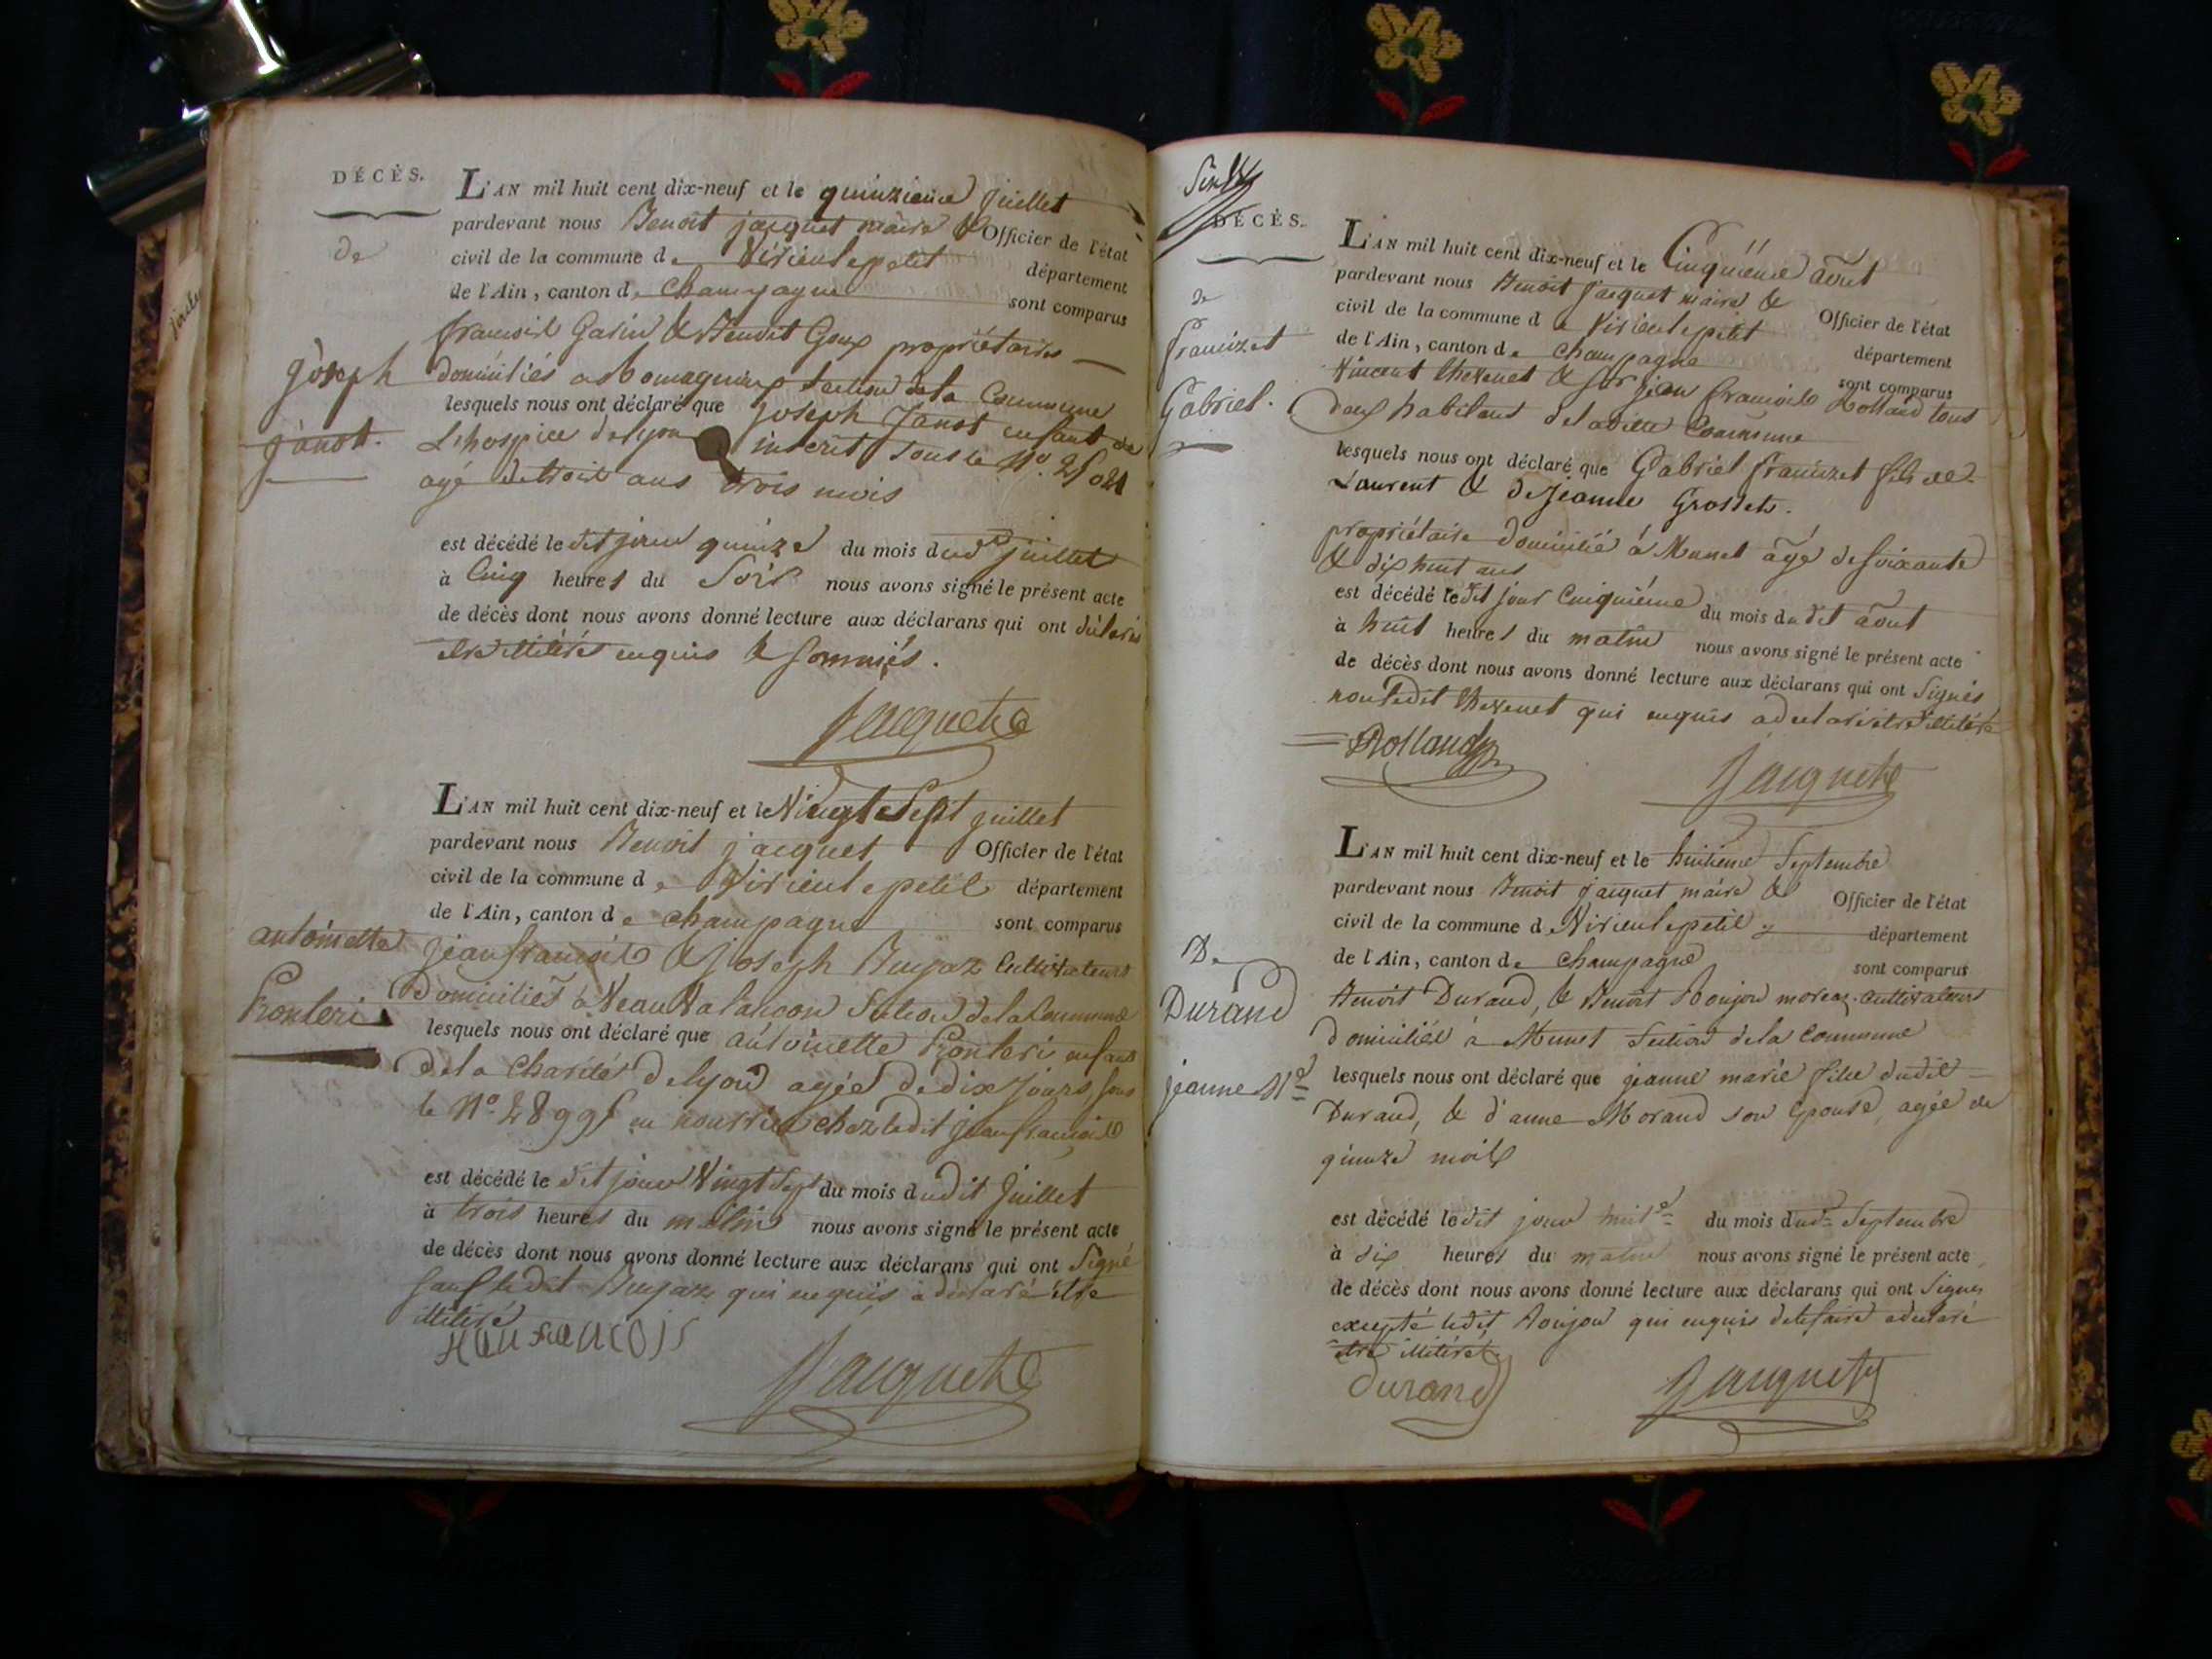 DÉCÈS.
de
joseph
janot.
L'AN mil huit cent dix-neuf et le quinzieme juillet
pardevant nous Benoit jacquet maire & Officier de l'état
civil de la commune de Virieulepetit département
de l'Ain, canton de Champagne sont comparus
francois Garin & Benoit Goux propriétaires
domiciliés a section de la Commune
lesquels nous ont déclaré que joseph Janot enfant de
Lhospice de lyon inscrit sous le N.º
agé de trois ans trois mois
est décédé le dit jour quinze du mois dud juillet
à Cinq heures du Soir nous avons signé le présent acte
de décès dont nous avons donné lecture aux déclarans qui ont déclarés
etre illitérés enquis & sommés.
Jacquet
antoinette
L'AN mil huit cent dix-neuf et le Vingt Sept juillet
pardevant nous Benoit jacquet Officier de l'état
civil de la commune de Virieulepetit département
de l'Ain, canton de Champagne sont comparus
jean francois & joseph Cultivateurs
domiciliés à section de la Commune
lesquels nous ont déclaré que antoinette enfant
de la Charité de lyon agée de dix jours sous
le Nº en nourrice chez ledit jean francois
est décédé le dit jour Vingt Sept du mois dudit juillet
à trois heures du matin nous avons signé le présent acte
de décès dont nous avons donné lecture aux déclarans qui ont Signé
sauf ledit qui enquis a déclaré être
illitéré
Jacquet
DÉCÈS.
de
Gabriel.
L'AN mil huit cent dix-neuf et le Cinquième août
pardevant nous Benoit jacquet maire & Officier de l'état
civil de la commune de Virieulepetit département
de l'Ain, canton de Champagne sont comparus
Vincent & Sr jean francois Rolland tous
deux habitant de ladite Commune
lesquels nous ont déclaré que Gabriel fils de
Laurent & de Jeanne
propriétaire domicilié à Munet âgé de soixante
& dix huit ans
est décédé le dit jour Cinquième du mois dudit août
à huit heures du matin nous avons signé le présent acte
de décès dont nous avons donné lecture aux déclarans qui ont Signés
non ledit qui enquis a declaré etre illitéré
Rolland
Jacquet
De
Durand
jeanne Me
L'AN mil huit cent dix-neuf et le huitieme Septembre
pardevant nous Benoit jacquet maire & Officier de l'état
civil de la commune de Virieulepetit département
de l'Ain, canton de Champagne sont comparus
Benoit Durand, & Benoit cultivateurs
domiciliés à Munet section de la Commune
lesquels nous ont déclaré que jeanne marie fille dudit
Durand, & d'anne Morand son épouse, agée de
quinze mois
est décédé ledit jour huite du mois dud Septembre
à six heures du matin nous avons signé le présent acte
de décès dont nous avons donné lecture aux déclarans qui ont Signés
excepté ledit qui enquis de le faire a declaré
etre illitéré
Durand
Jacquet